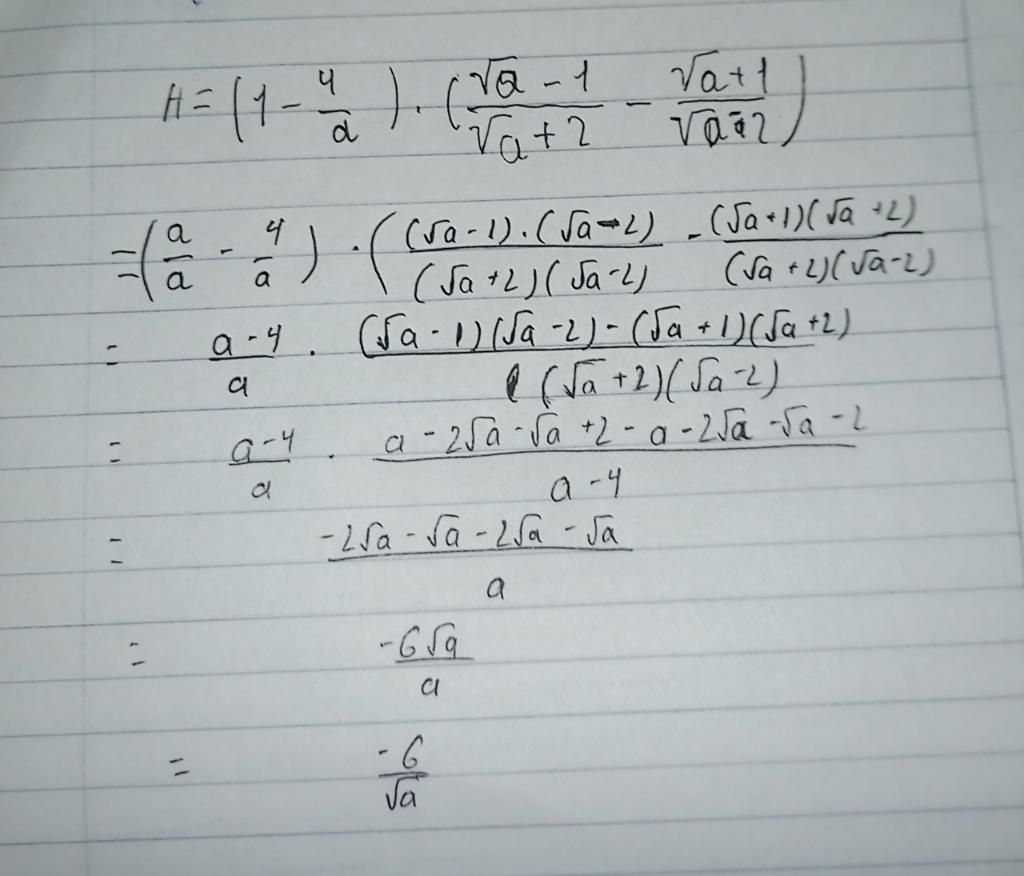 H = (1 - 4/a) · ((√a - 1)/(√a + 2) - (√a + 1)/(√a - 2))
= (a/a - 4/a) · ((√a - 1)·(√a - 2)/(√a + 2)(√a - 2) - (√a + 1)(√a + 2)/(√a + 2)(√a - 2)
= (a - 4)/a · ((√a - 1)(√a - 2) - (√a + 1)(√a + 2))/((√a + 2)(√a - 2))
= (a - 4)/a · (a - 2√a - √a + 2 - a - 2√a - √a - 2)/(a - 4)
= (-2√a - √a - 2√a - √a)/a
= -6√a/a
= -6/√a